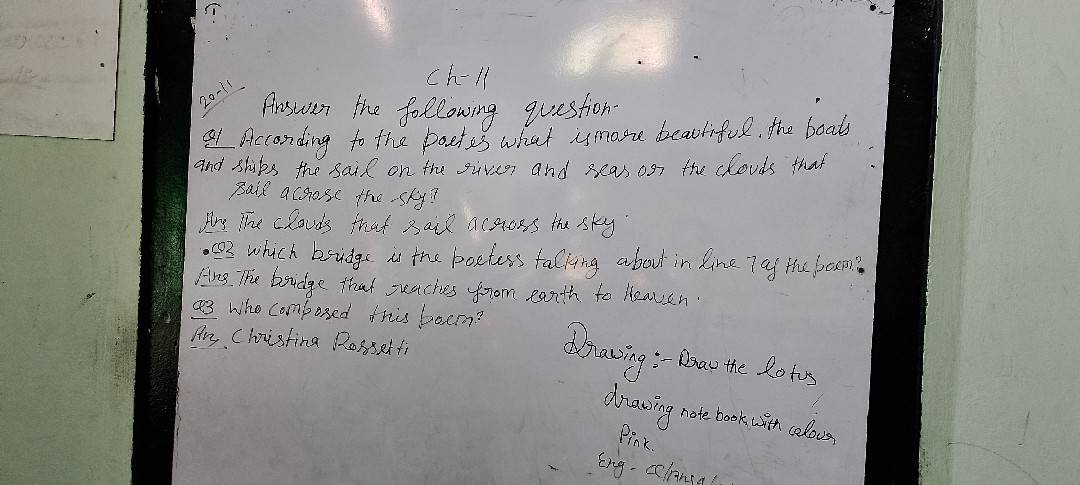 Ch-11
20-11
Answer the following question-
Q1 According to the poetes what is more beautiful. the boats
and ships the sail on the river and seas or the clouds that
sail acrose the sky?
Ans The clouds that sail across the sky.
Q2 which bridge is the poetess talking about in line 7 of the poem?
Ans. The bridge that reaches from earth to Heaven.
Q3 who composed this poem?
Ans. Christina Rossetti
Drawing :- Draw the lotus
drawing note book with colour
Pink.
Eng -